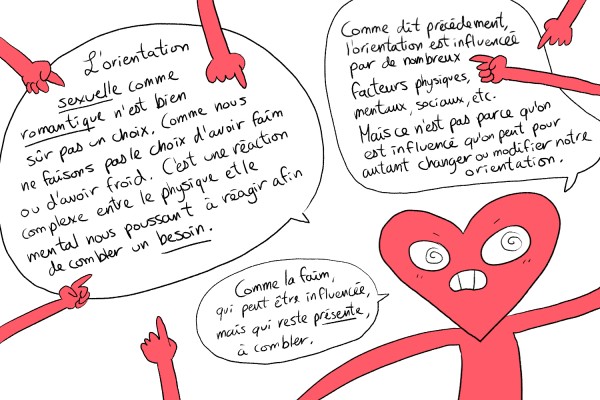 L'orientation
sexuelle comme
romantique n'est bien
sûr pas un choix. Comme nous
ne faisons pas le choix d'avoir faim
ou d'avoir froid. C'est une réaction
complexe entre le physique et le
mental nous poussant à réagir afin
de combler un besoin.
Comme dit précédement,
l'orientation est influencée
par de nombreux
facteurs physiques,
mentaux, sociaux, etc.
Mais ce n'est pas parce qu'on
est influencé qu'on peut pour
autant changer ou modifier notre
orientation.
Comme la faim,
qui peut être influencée,
mais qui reste présente,
à combler.